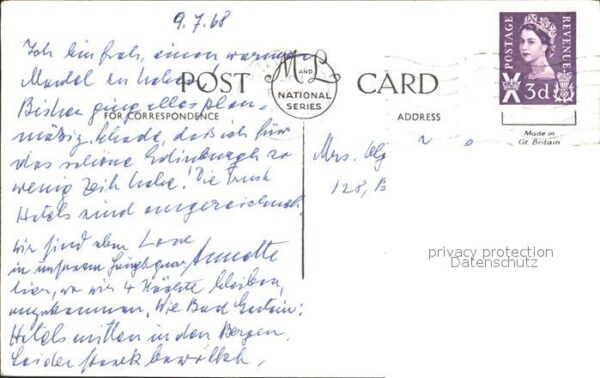 9.7.68
Ich bin froh, einen warmen
Mantel zu haben!
Bisher ging alles plan-
mäßig. Schade, daß ich für
das schöne Edinburgh so
wenig Zeit habe! Die Trust
Hotels sind ausgezeichnet.
Wir sind eben
in unserem
hier, wo wir 4 Nächte bleiben,
angekommen. Wie Bad Gastein:
Hotels mitten in den Bergen.
Leider stark bewölkt.
Love
Annette
POST CARD
M AND L
NATIONAL
SERIES
FOR CORRESPONDENCE
ADDRESS
Mrs. Olg
128, B
POSTAGE
REVENUE
3d
Made in
Gt. Britain
privacy protection
Datenschutz